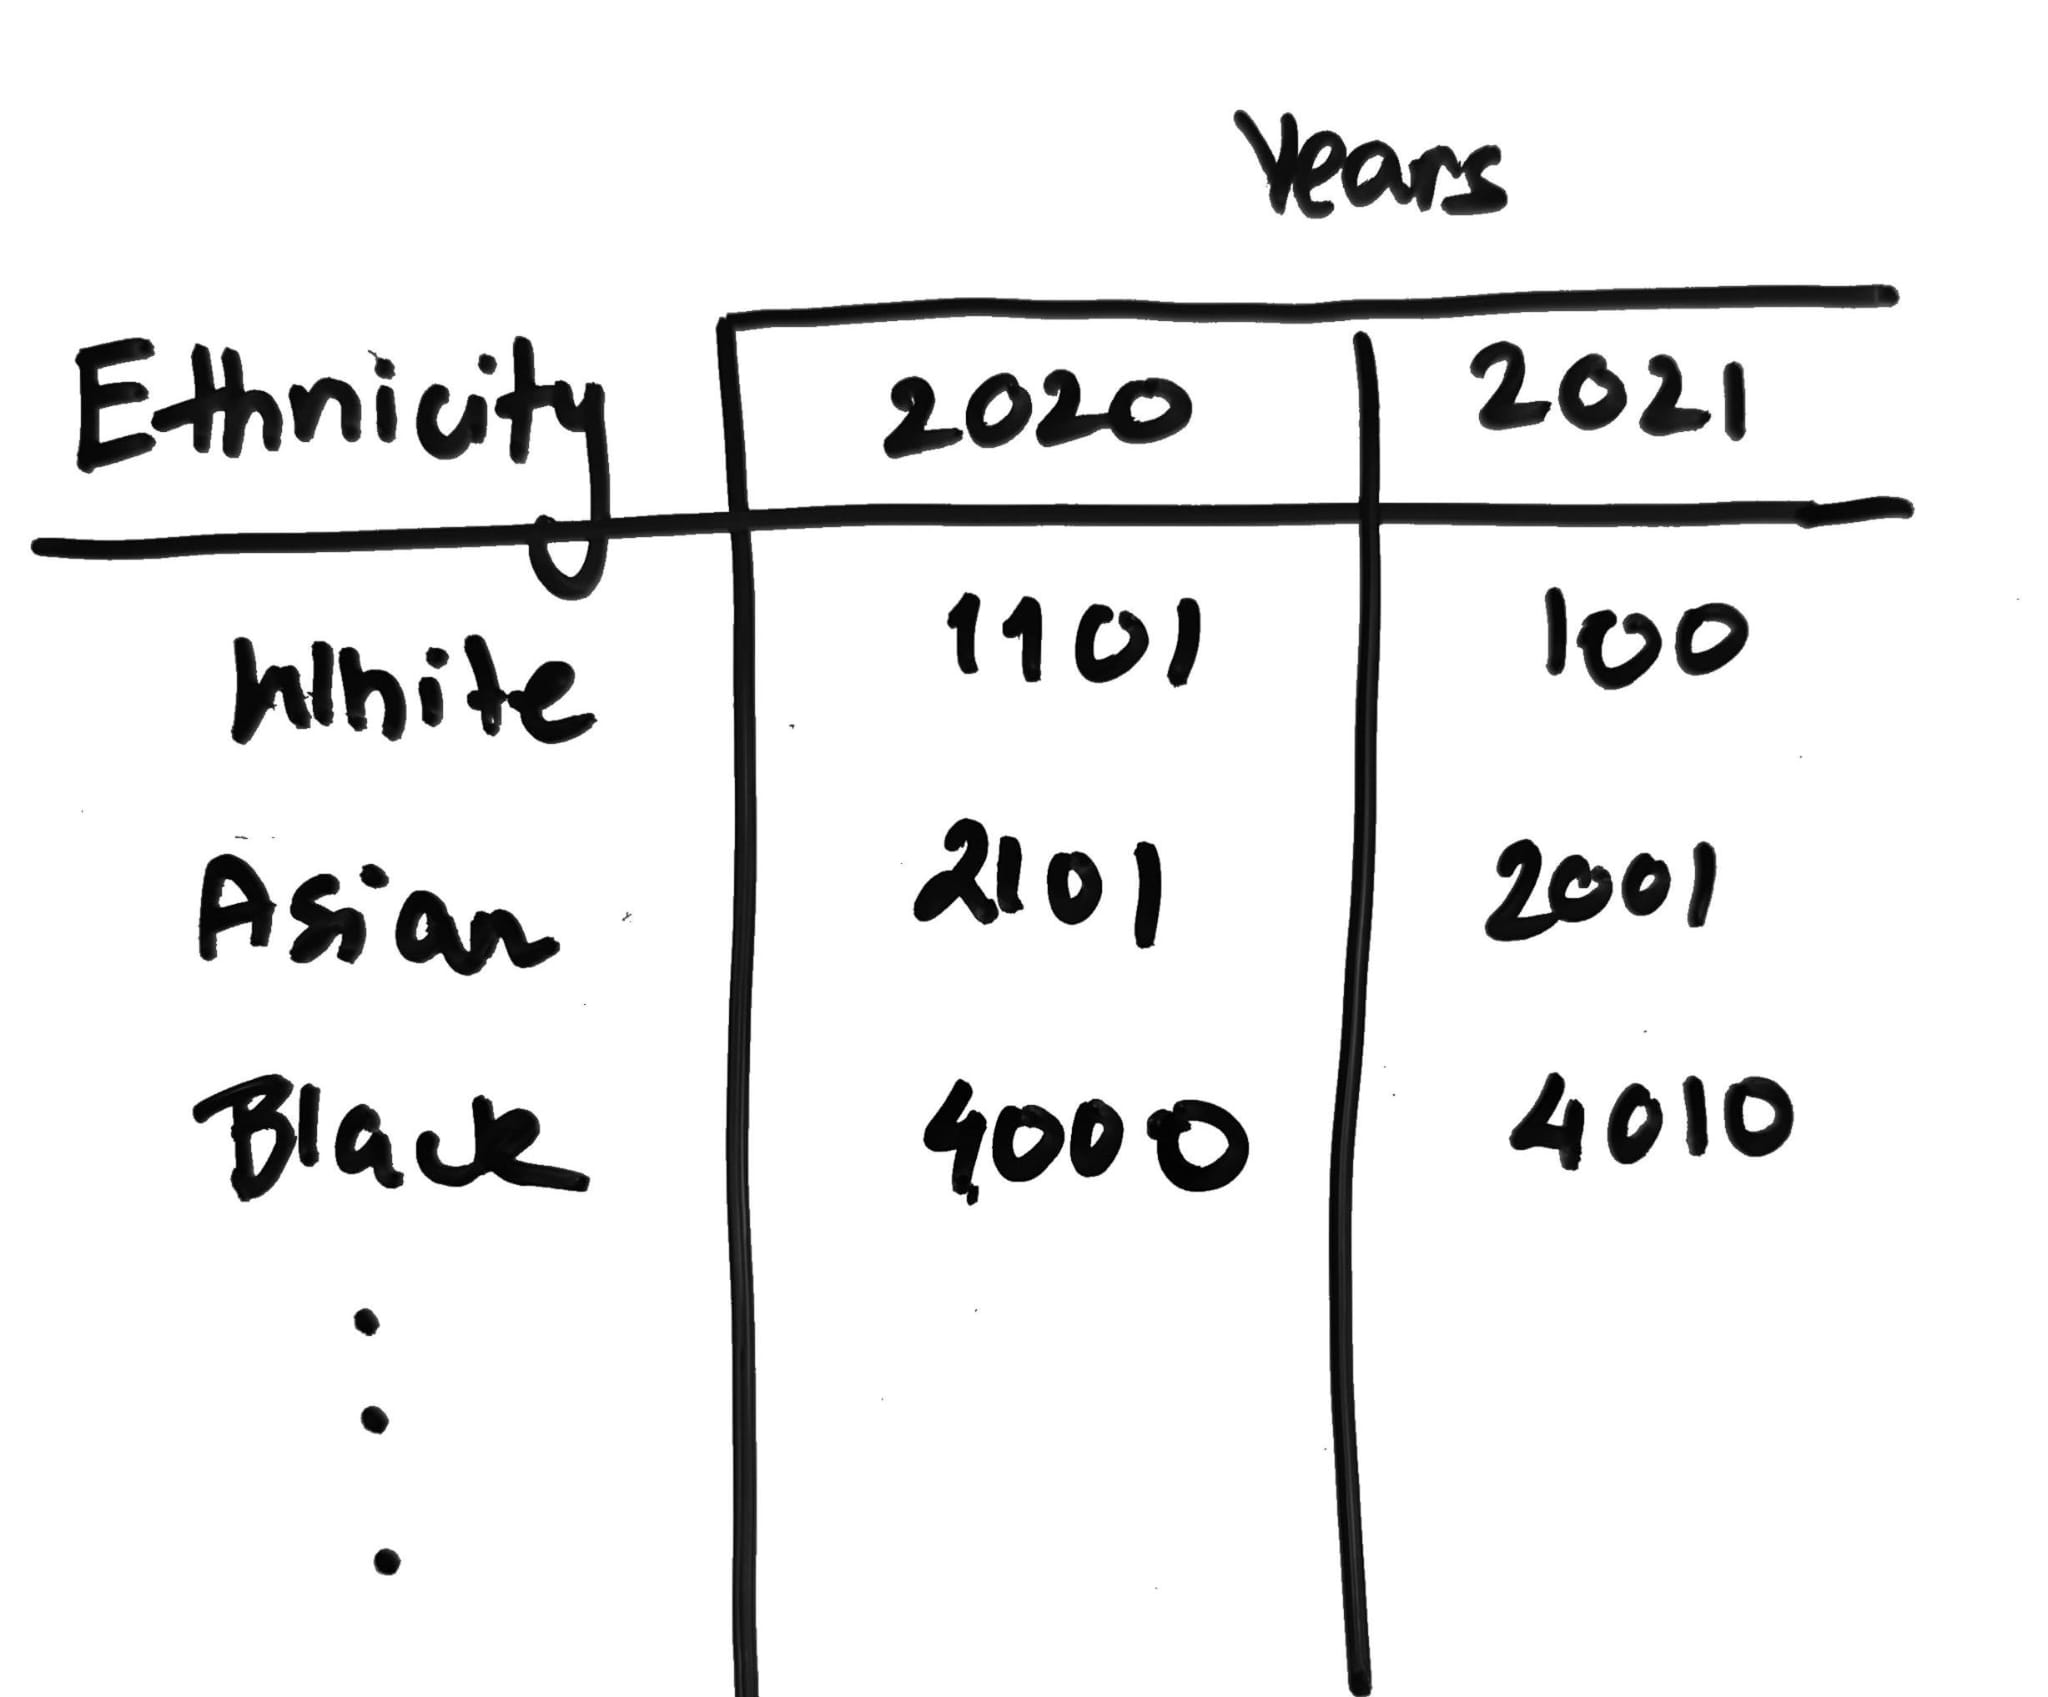 Years
Ethnicity 2020 2021
White 1101 100
Asian 2101 2001
Black 4000 4010
.
.
.